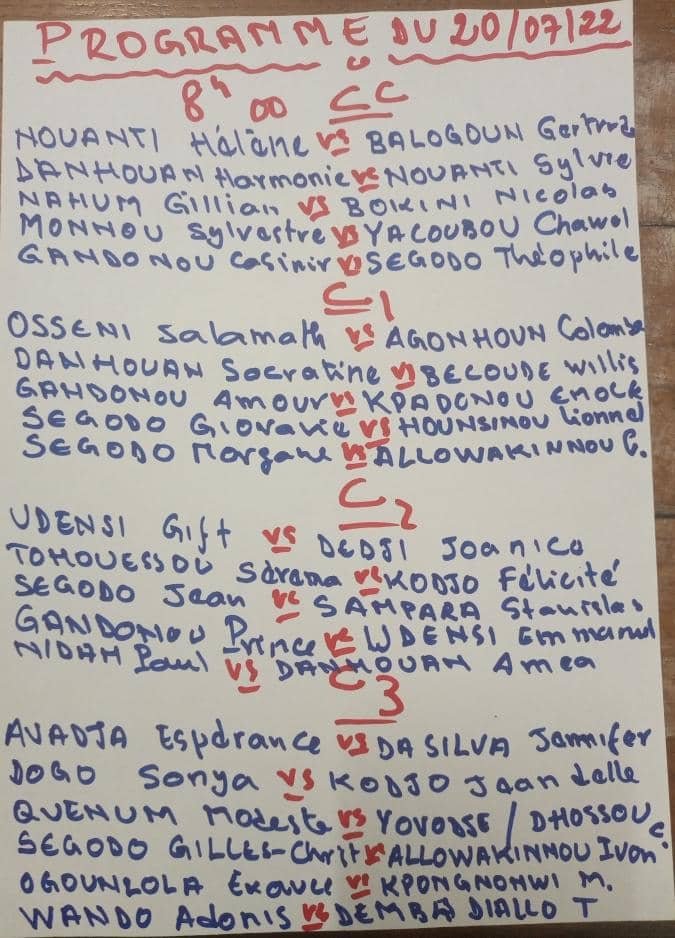 PROGRAMME DU 20/07/22
8h 00 CC
NOUANTI Hélène vs BALOGOUN Gertrra
DANHOUAN Harmonie vs NOUANTI Sylvie
NAHUM Gillian vs BOKINI Nicolas
MONNOU Sylvestre vs YACOUBOU Chawol
GANDONOU Casimir vs SEGODO Théophile
C1
OSSENI Salamath vs AGONHOUN Colombe
DANHOUAN Socratine vs BECOUDE Willis
GANDONOU Amour vs KPADONOU Enock
SEGODO Giovanie vs HOUNSINOU Lionnel
SEGODO Morgane vs ALLOWAKINNOU C.
C2
UDENSI Gift vs DEDJI Joanico
TOHOUESSOU Sèrena vs KODJO Félicité
SEGODO Jean vs SAMPARA Stanislas
GANDONOU Prince vs UDENSI Emmanuel
NIDAH Paul vs DANHOUAN Amea
C3
AVADJA Espérance vs DA SILVA Jennifer
DOGO Sonya vs KODJO Jaandelle
QUENUM Modeste vs YOVODSE / DHOSSOU C
SEGODO GILLES-Christ vs ALLOWAKINNOU Ivon
OGOUNLOLA Exaucé vs KPONGNONWI M.
WANDO Adonis vs DEMBA DIALLO T